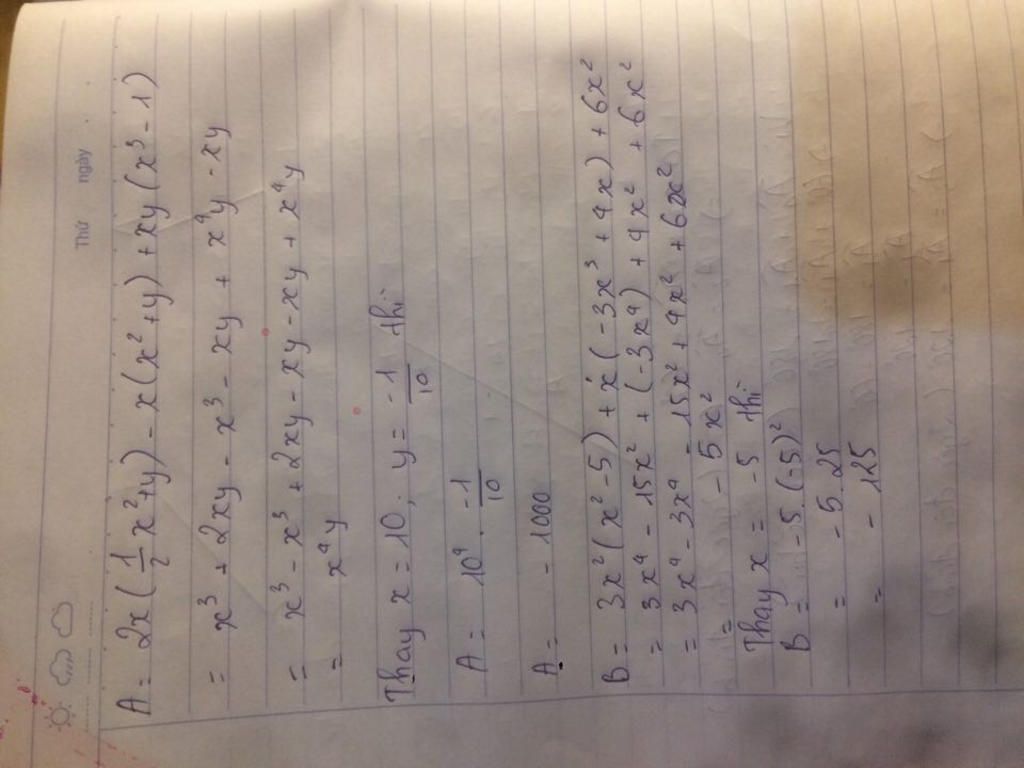 Thứ ngày
A = 2x(1/2 x²+y) - x(x²+y) + xy(x³-1)
= x³ + 2xy - x³ - xy + x⁴y - xy
= x³ - x³ + 2xy - xy - xy + x⁴y
= x⁴y
Thay x = 10, y = -1/10 thì
A = 10⁴ . -1/10
A = - 1000
B = 3x²(x²-5) + x(-3x³+4x) + 6x²
= 3x⁴ - 15x² + (-3x⁴) + 4x² + 6x²
= 3x⁴ - 3x⁴ - 15x² + 4x² + 6x²
= - 5x²
Thay x = -5 thì
B = -5.(-5)²
= -5.25
= - 125